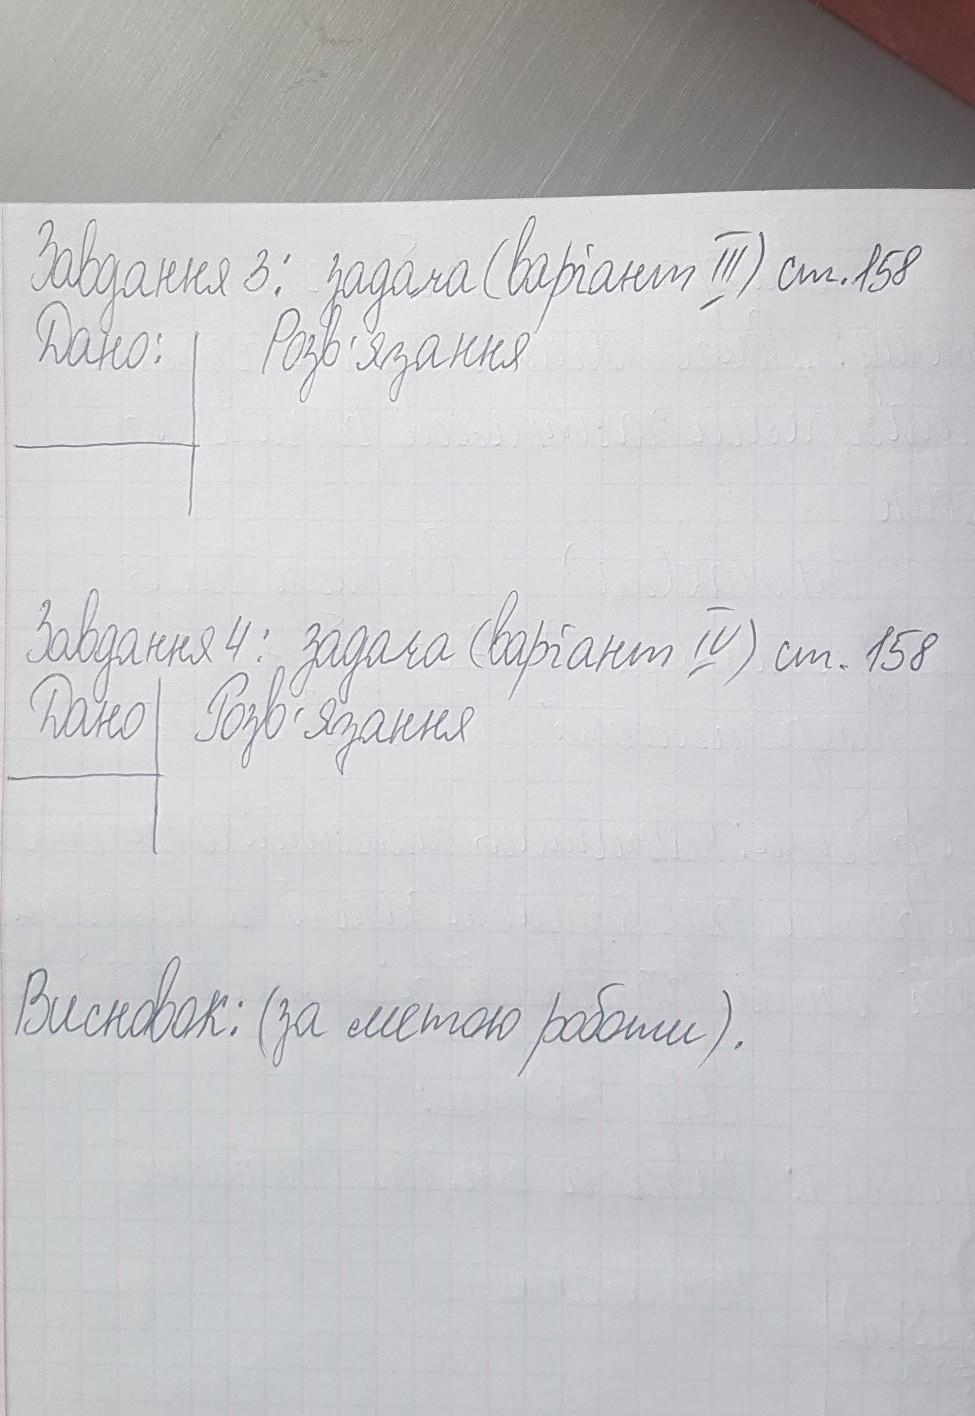 Завдання 3: задача (варіант III) ст. 158
Дано: Розв'язання
Завдання 4: задача (варіант IV) ст. 158
Дано Розв'язання
Висновок: (за метою роботи).